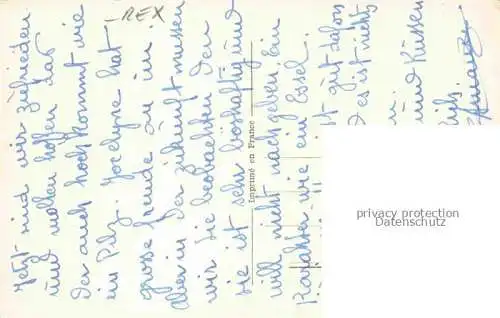 - REX
Jetzt sind wir zufrieden
und wollen hoffen das
Der auch hoch kommt wie
ein Pilz. Jocelyne hat
grosse freude an im.
Aber in der zukunft mussen
wir Sie beobachten Den
sie ist sehr boshaftig und
will nicht nachgeben. Ein
Karakter wie ein Essel.
ist gut dafon
Des ist nicht
und Küssen
Imprimé en France
privacy protection
Datenschutz